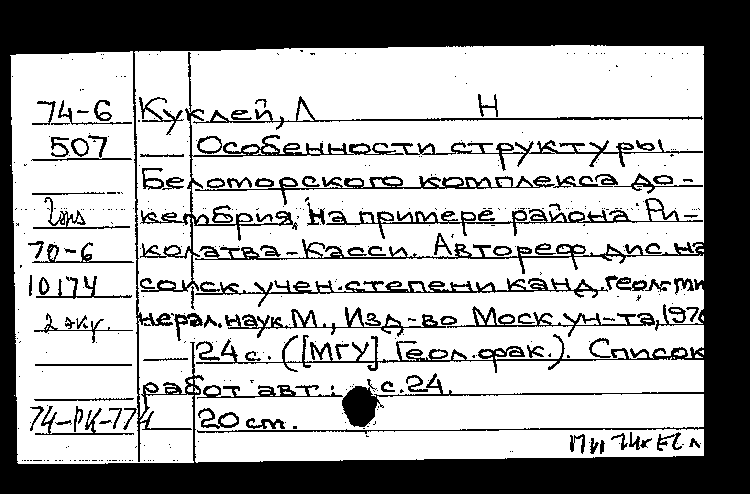 74-6 Куклей, Л Н
507 Особенности структуры
Беломорского комплекса до-
кембрия, на примере района Ри-
70-6 колатва-Касси. Автореф. дис. на
10174 соиск. учен. степени канд. геол.-ми
2 экз. нерал. наук. М., Изд-во Моск. ун-та, 1970
24 с. ([МГУ]. Геол. фак.). Список
работ авт.: с. 24.
74-РК-774 20 см.